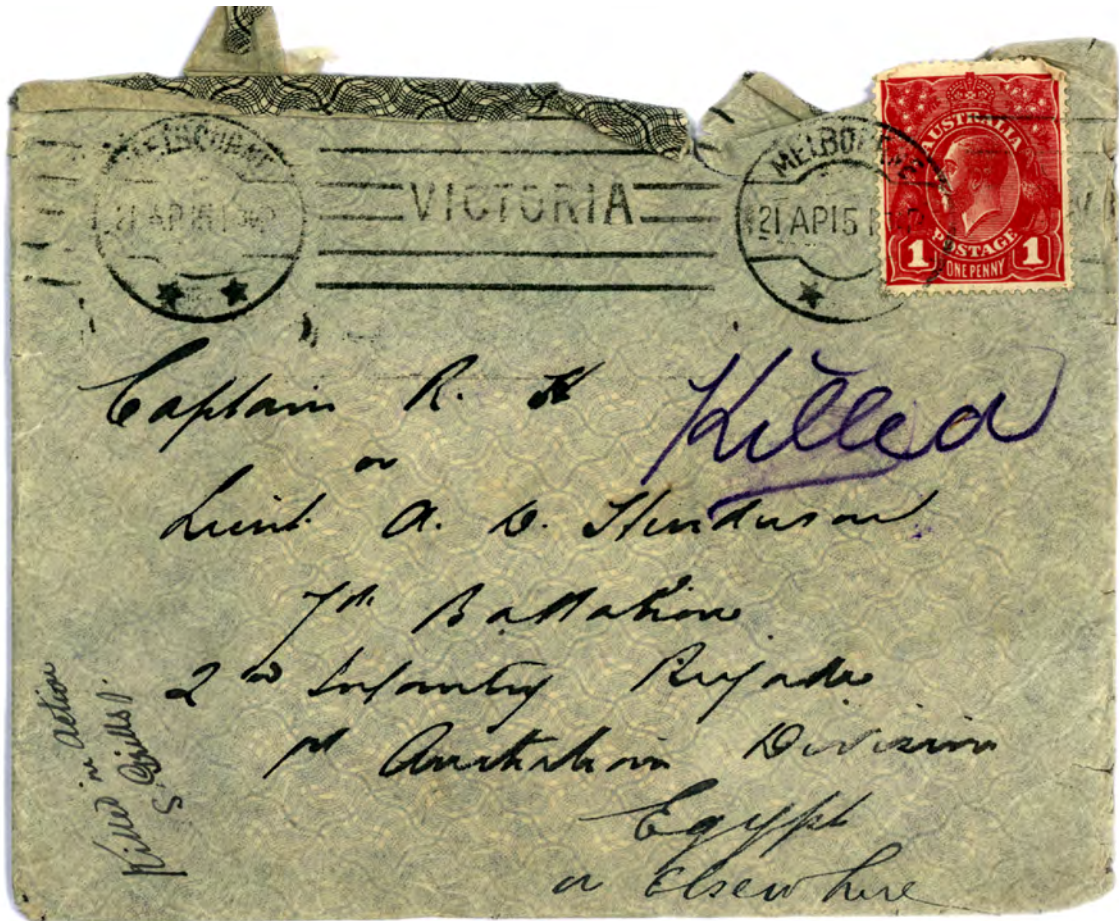 MELBOURNE
21 AP 15
VICTORIA
MELBOURNE
21 AP 15
AUSTRALIA
POSTAGE
1 ONE PENNY 1
Captain R. H
Killed
or
Lieut. A. D. Henderson
7th Battalion
2nd Infantry Brigade
1st Australian Division
Egypt
or Elsewhere
Killed in action